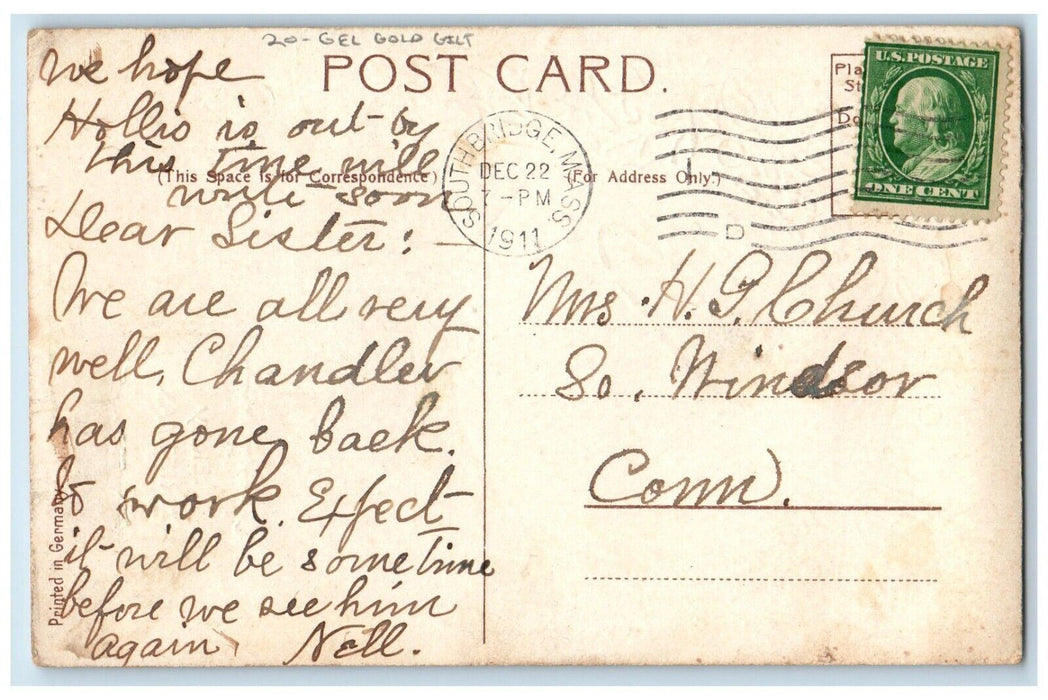 20-GEL GOLD GILT
POST CARD.
We hope
Hollis is out by
this time will
write soon
(This Space is for Correspondence)
(For Address Only.)
SOUTHBRIDGE, MASS.
DEC 22
7-PM
1911
D
Pla
St
Do
U.S. POSTAGE
ONE CENT
Dear Sister:
We are all very
well, Chandler
has gone back.
to work. Expect
it will be sometime
before we see him
again Nell.
Mrs. H. G. Church
So. Windsor
Conn.
Printed in Germany